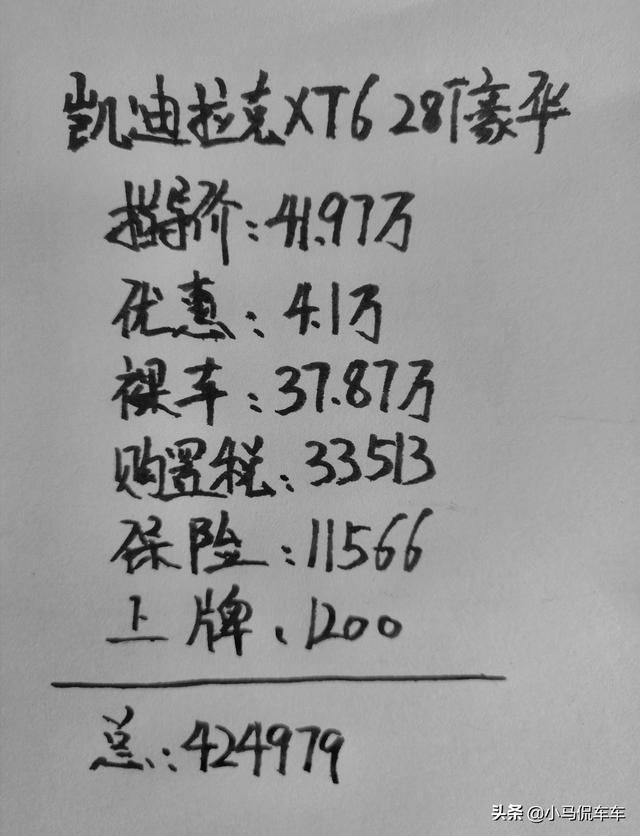 凯迪拉克XT6 28T豪华
指导价:41.97万
优惠:4.1万
裸车:37.87万
购置税:33513
保险:11566
上牌:1200
总:424979
头条 @小马侃车车